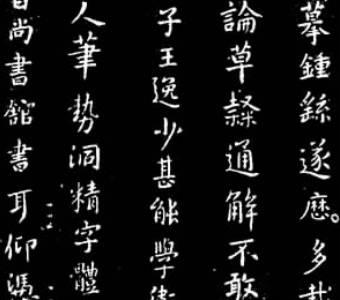 摹鍾繇遂歷多載
論草隸通解不敢
子王逸少甚能學衛
人筆勢洞精字體
尚書舘書耳仰憑